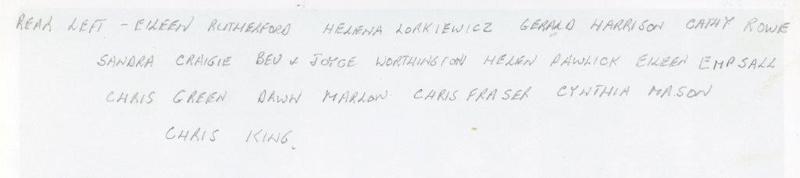 REAR LEFT - EILEEN RUTHERFORD HELENA LORKIEWICZ GERALD HARRISON CATHY ROWE
SANDRA CRAIGIE BEV & JOYCE WORTHINGTON HELEN PAWLICK EILEEN EMPSALL
CHRIS GREEN DAWN MARLOW CHRIS FRASER CYNTHIA MASON
CHRIS KING.